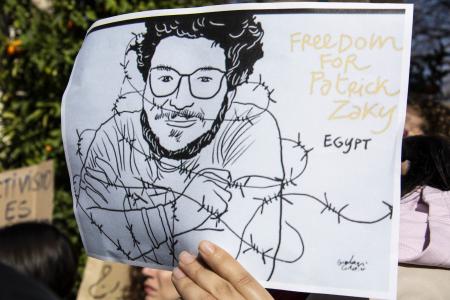 FREEDOM
FOR
Patrick
ZaKy
EGYPT
TIVISIO
ES